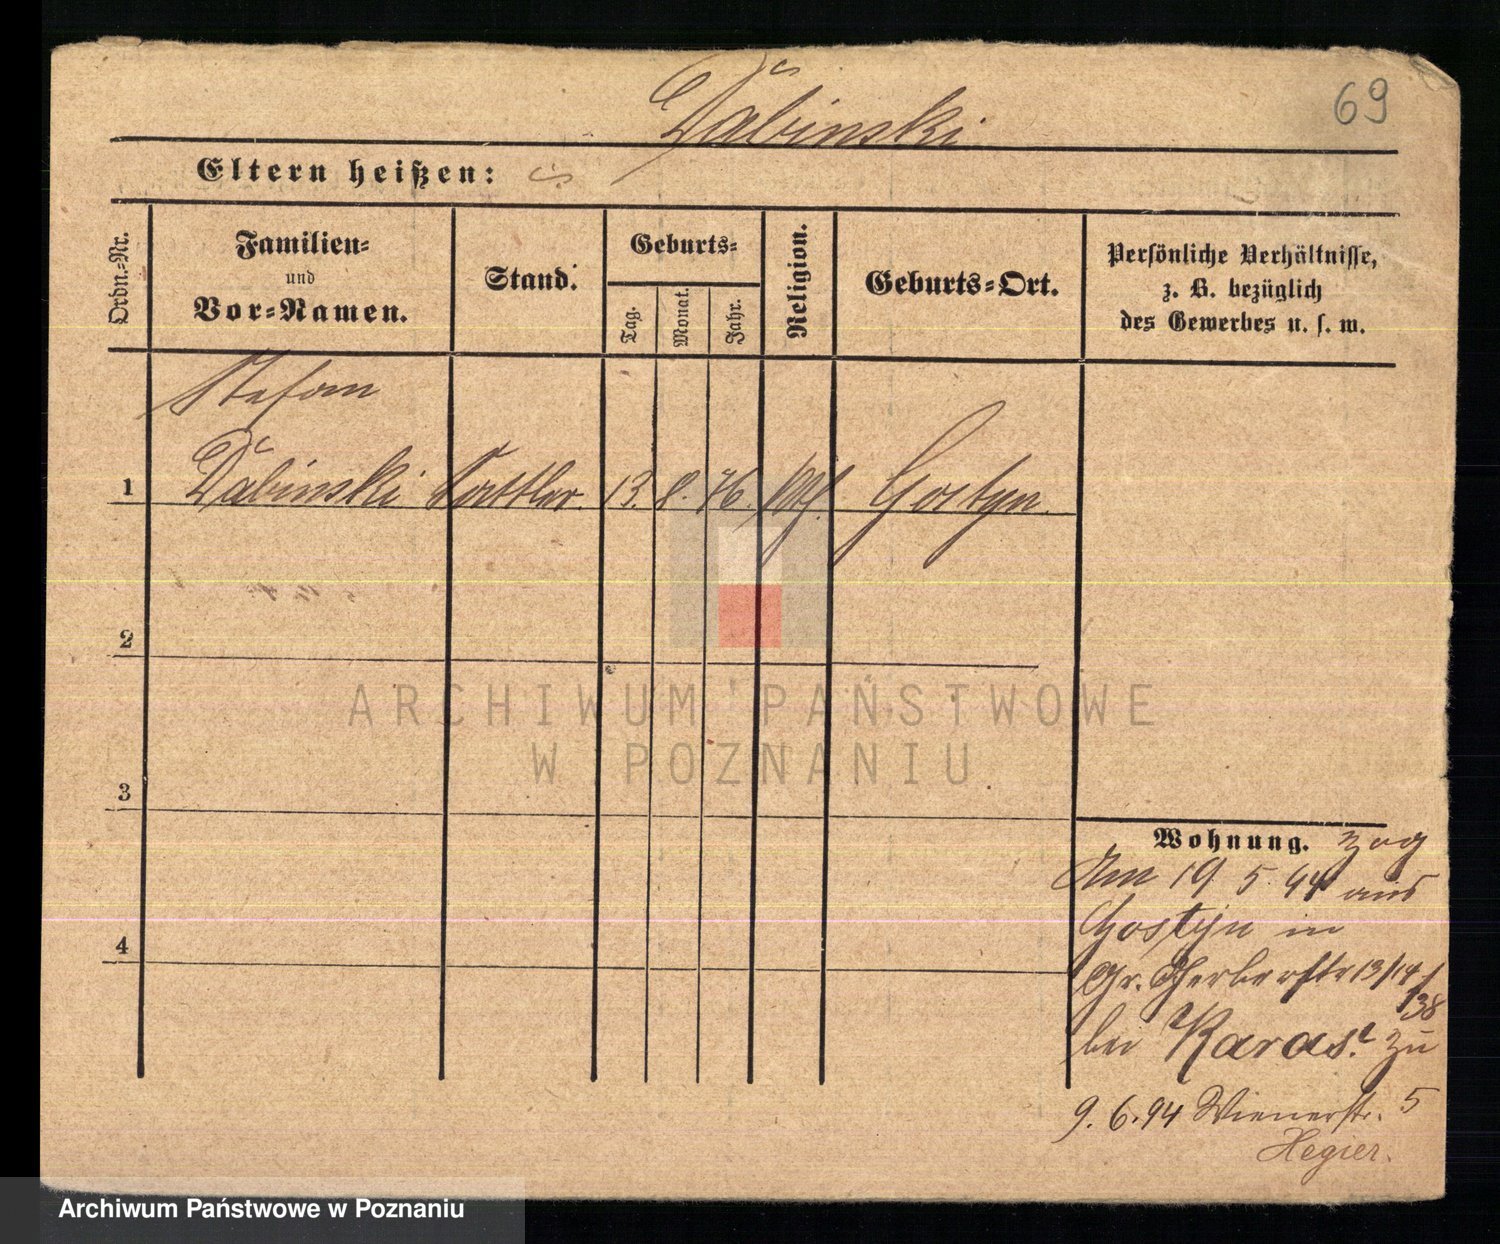 69
Dăbinski
Eltern heißen:
Ordn.=Nr.
Familien=
und
Vor=Namen.
Stand.
Geburts=
Tag.
Monat.
Jahr.
Religion.
Geburts=Ort.
Persönliche Verhältnisse,
z. B. bezüglich
des Gewerbes u. s. w.
Stefan
1 Dăbinski Sattler. 13. 8. 76. Gostyn.
2
ARCHIWUM PAŃSTWOWE
W POZNANIU
3
Wohnung. zog
Am 19 5 94 aus
4
Gostyn in
Gr. Gerberstr 13/14
138
bei Karas. zu
9. 6. 94 Wienerstr. 5
Hegier.
Archiwum Państwowe w Poznaniu